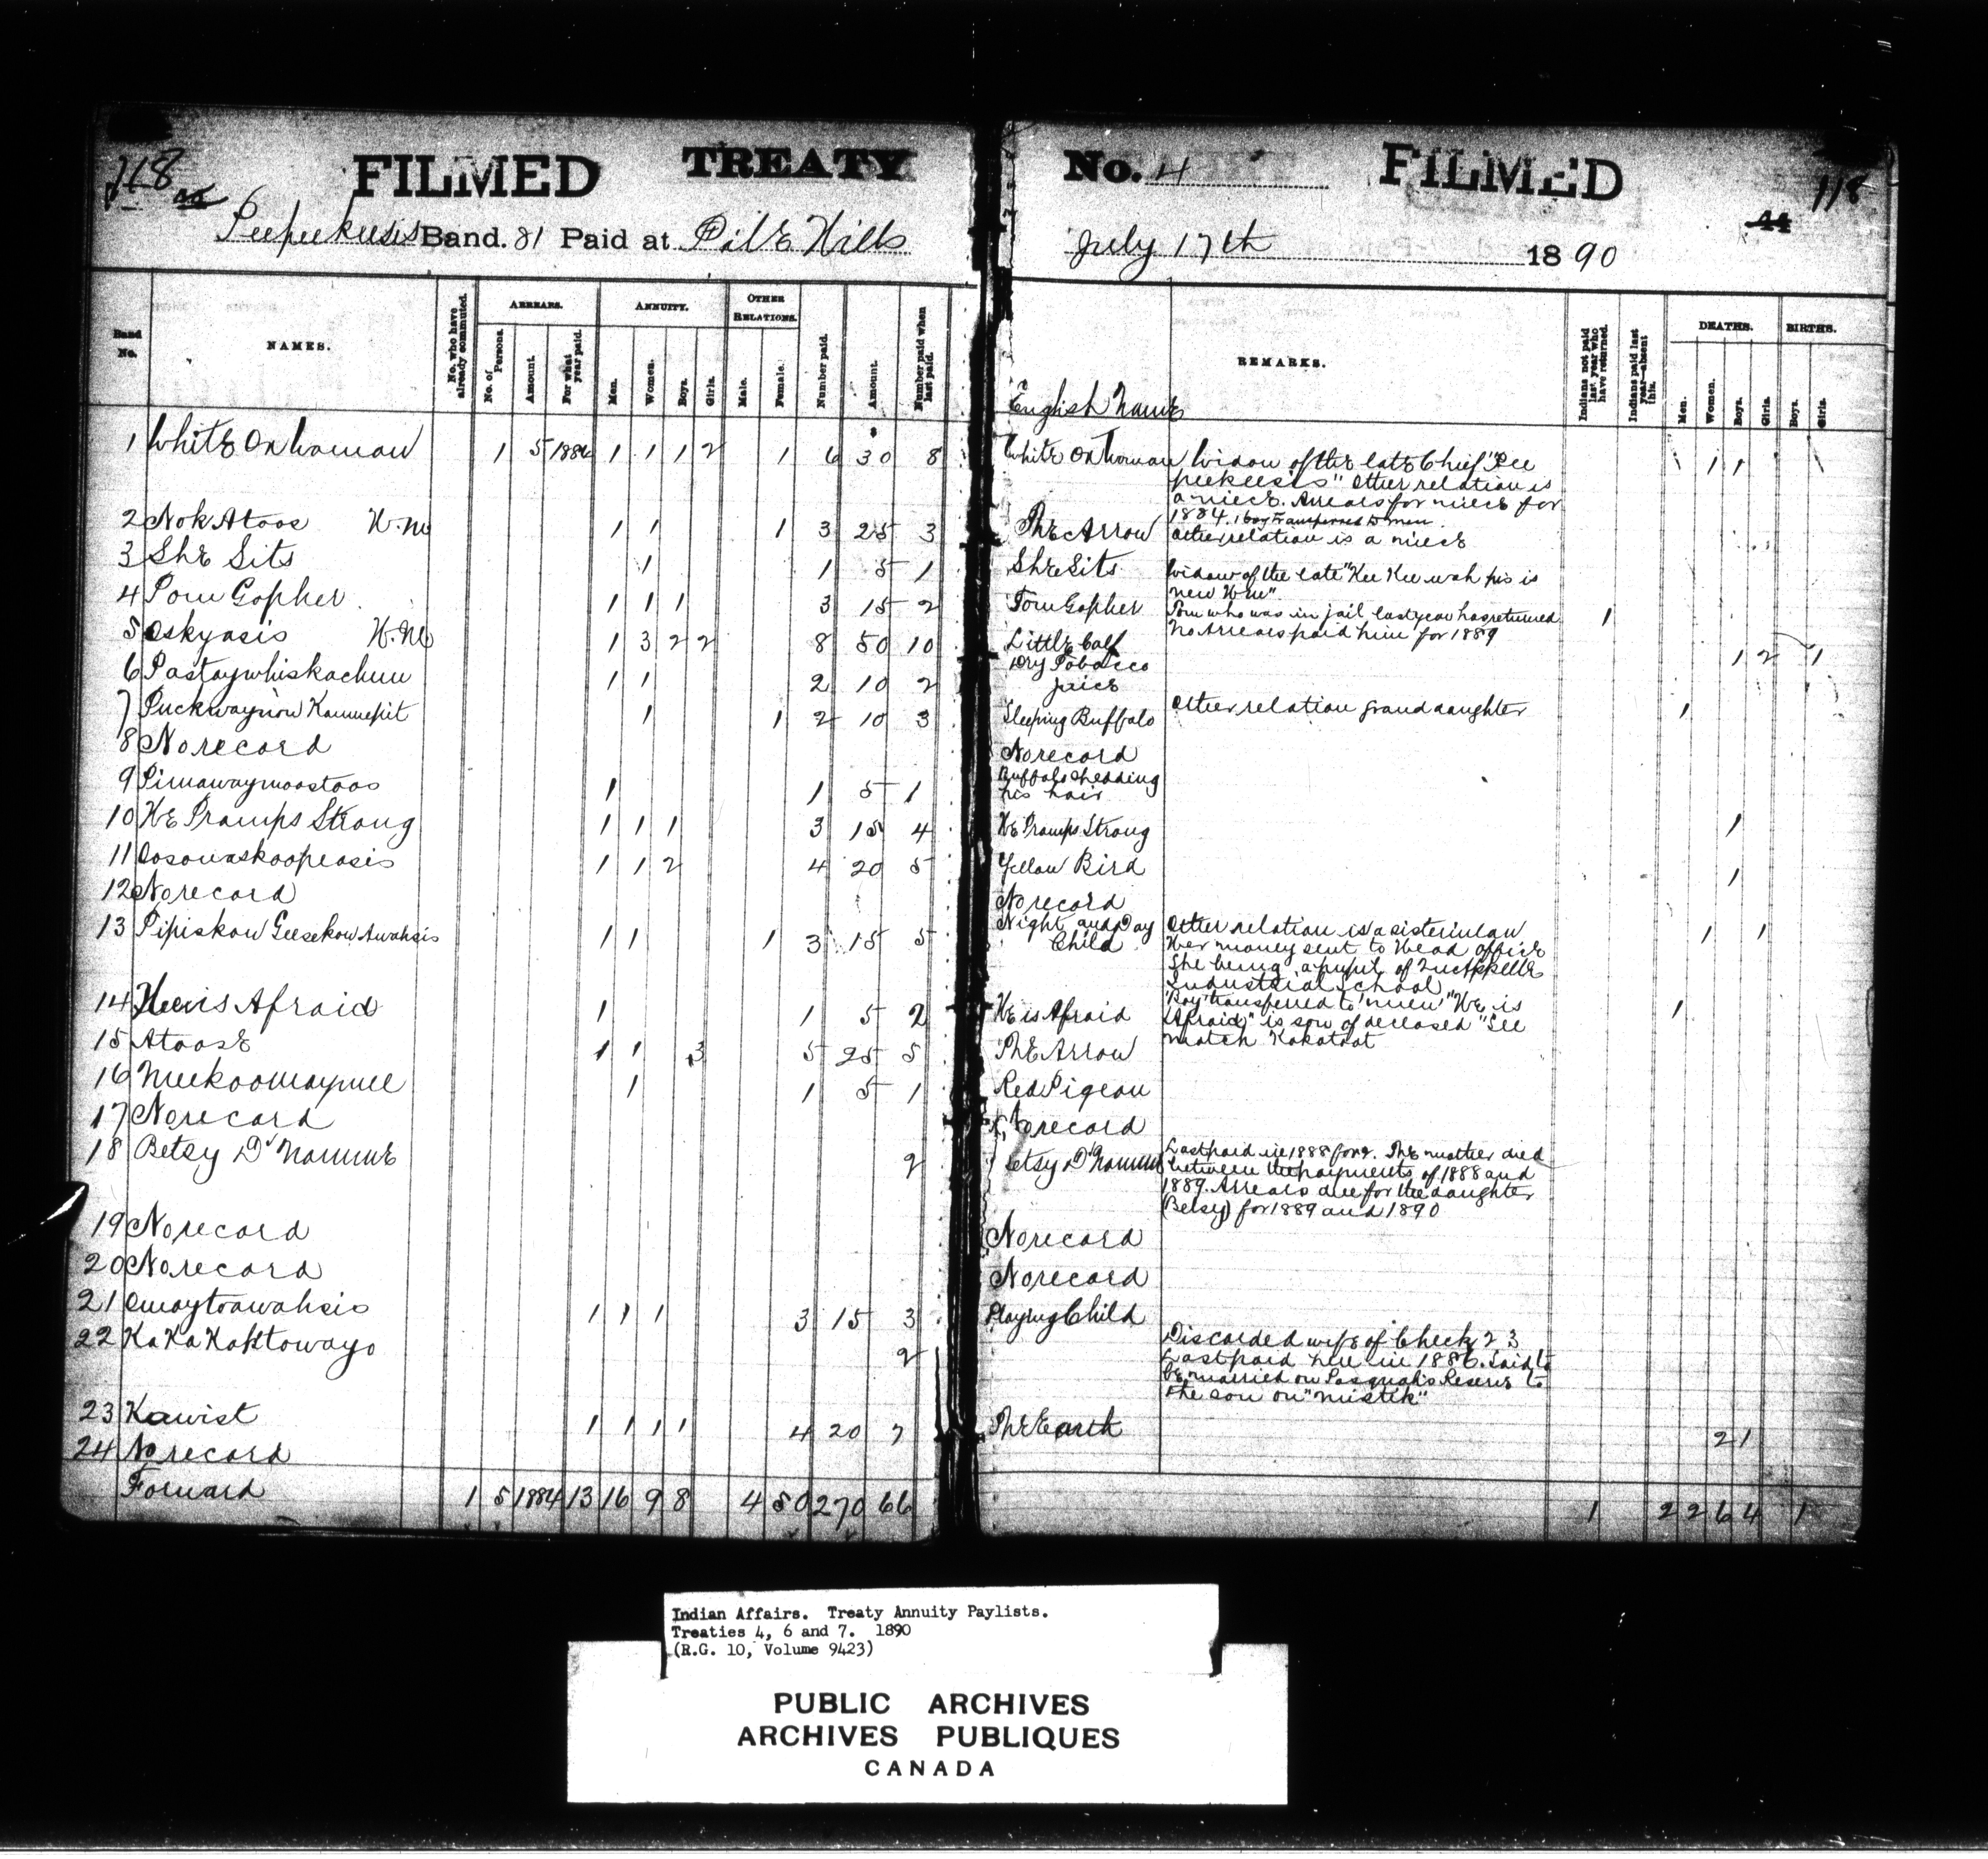 118 FILMED TREATY No. 4 FILMED 118
44
Peepeekeesis Band. 81 Paid at File Hills July 17th 1890
Band No. NAMES. No. who have already commuted. ARREARS. No. of Persons. Amount. For what year paid. ANNUITY. Men. Women. Boys. Girls. OTHER RELATIONS. Male. Female. Number paid. Amount. Number paid when last paid. REMARKS. Indians not paid last year who have returned. Indians paid last year—absent this. DEATHS. Men. Women. Boys. Girls. BIRTHS. Boys. Girls.
English Name
1 White Ox Woman 1 5 1884 1 1 1 2 1 6 30 8 White Ox Woman Widow of the late Chief "Pee
peekeesis" Other relation is
a niece. Arrears for niece for
1884. 1 boy Transferred to men. 1 1
2 Nok Atoos H.M 1 1 1 3 25 3 The Arrow Other relation is a niece
3 She Sits 1 1 5 1 She Sits Widow of the late "Kee Kee wah pis is
new H.M"
4 Tom Gopher 1 1 1 3 15 2 Tom Gopher Tom who was in jail last year has returned 1
No Arrears paid him for 1889
5 Oskyasis H.M 1 3 2 2 8 50 10 Little Calf 1 2 1
6 Pastaywhiskachum 1 1 2 10 2 Dry Tobacco
juice
7 Puckwaynow Kannepit 1 1 2 10 3 Sleeping Buffalo Other relation grand daughter 1
8 No record No record
9 Pimawaymoostoos 1 1 5 1 Buffalo shedding
his hair
10 He Tramps Strong 1 1 1 3 15 4 He Tramps Strong 1
11 Oosowaskoopeasis 1 1 2 4 20 5 Yellow Bird 1
12 No record No record
13 Pipiskow Geesekow Awahsis 1 1 1 3 15 5 Night and Day
Child Other relation is a sister in law 1 1
Her money sent to Head office
She being a pupil of Qu'Appelle
Industrial School
14 He is Afraid 1 1 5 2 He is Afraid "Boy" transferred to "men" "He is 1
Afraid" is son of deceased "See
match Kakotoot
15 Atoose 1 1 3 5 25 5 The Arrow
16 Meekoomaymee 1 1 5 1 Red Pigeon
17 No record No record
18 Betsy D Nomme 2 Betsy D Nomme Last paid in 1888 for 2. The mother died
between the payments of 1888 and
1889. Arrears due for the daughter
(Betsy) for 1889 and 1890
19 No record No record
20 No record No record
21 Omaytoawahsis 1 1 1 3 15 3 Playing Child
22 Ka Ka Kaktowayo 2 Discarded wife of Check 23
Last paid here in 1886. Said to
be married on Pasquah's Reserve to
the son on "mistik"
23 Kawist 1 1 1 1 4 20 7 The Earth 2 1
24 No record
Forward 1 5 1884 13 16 9 8 4 50 270 66 1 2 2 6 4 1
Indian Affairs. Treaty Annuity Paylists.
Treaties 4, 6 and 7. 1890
(R.G. 10, Volume 9423)
PUBLIC ARCHIVES
ARCHIVES PUBLIQUES
CANADA